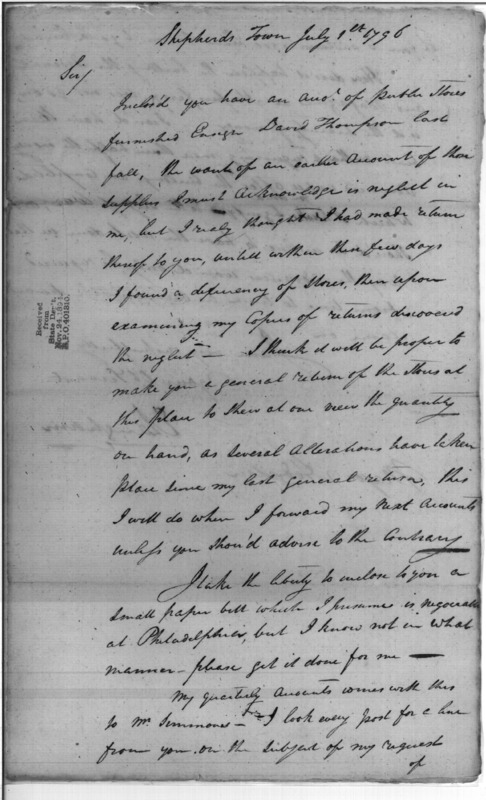 Shepherds Town July 1st 1796
Sir/
Inclos'd you have an acct. of Public Stores
furnished Ensign David Thompson last
fall, the want of an earlier Account of those
supplies I must acknowledge is neglect in
me, but I realy thought I had made return
thereof to you, untill within these few days
I found a deficiency of Stores, then upon
examining my Copies of returns discovered
the neglect — I think it will be proper to
make you a general return of the Stores at
this place to shew at one view the quantity
on hand, as several alterations have taken
place since my last general return, this
I will do when I forward my next accounts
unless you shou'd advise to the Contrary
I take the liberty to inclose to you a
small paper bill which I presume is negociable
at Philadelphia, but I know not in what
manner — please get it done for me —
My quarterly accounts comes with this
to Mr. Simmons — I look every post for a line
from you on the subject of my request
of
Received
from
State Dep't,
A.P.O. 401310.